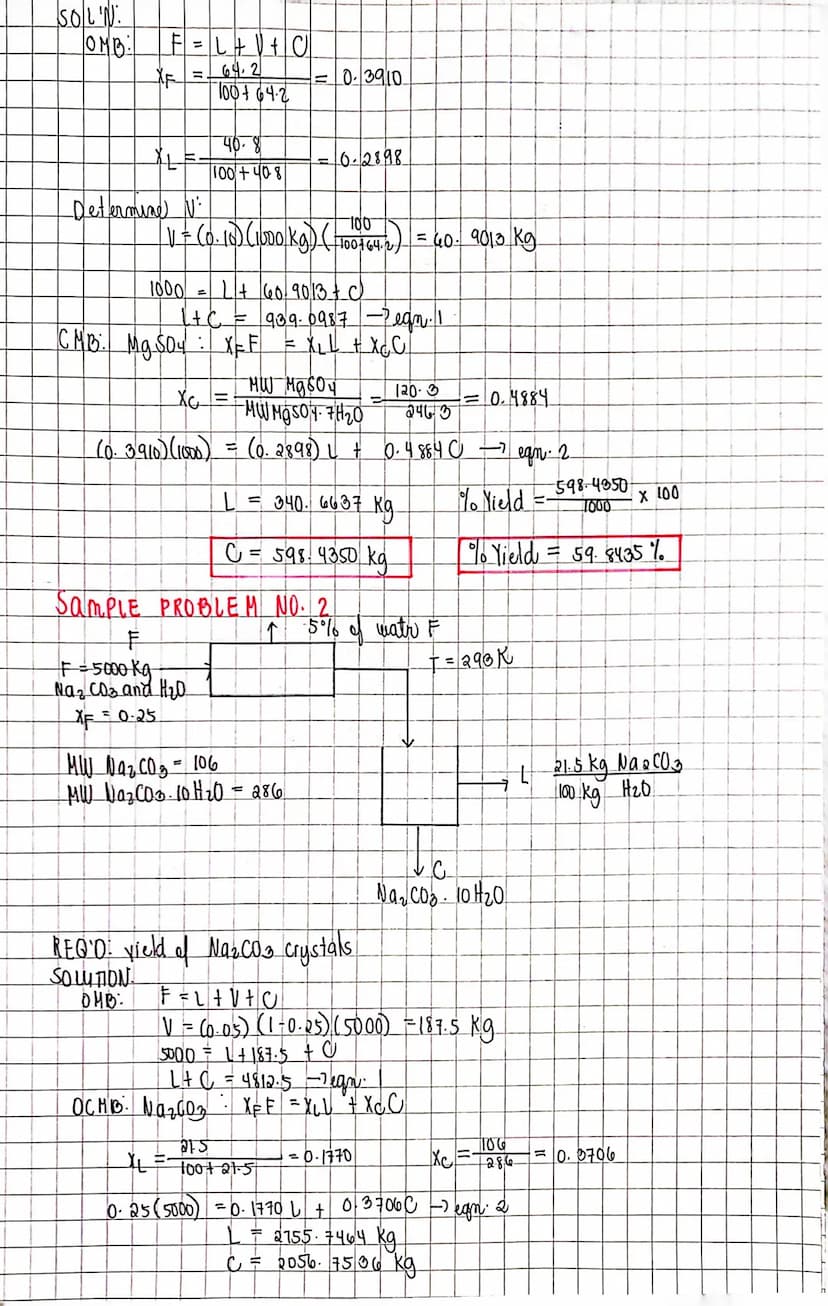 SOL'N:
OMB: F = L + V + C
XF = 64.2 / 100 + 64.2 = 0.3910
XL = 40.8 / 100 + 40.8 = 0.2898
Determine V:
V = (0.10)(1000 kg)(100 / 100+64.2) = 60.9013 kg
1000 = L + 60.9013 + C
L + C = 939.0987 → eqn. 1
CMB: MgSO4 : XFF = XLL + XCC
XC = MW MgSO4 / MW MgSO4·7H2O = 120.3 / 246.3 = 0.4884
(0.3910)(1000) = (0.2898) L + 0.4884 C → eqn. 2
L = 340.6637 kg
% Yield = 598.4350 / 1000 x 100
C = 598.4350 kg
% Yield = 59.8435 %
SAMPLE PROBLEM NO. 2
F
↑ 5% of watr F
F = 5000 kg
Na2CO3 and H2O
XF = 0.25
T = 293 K
MW Na2CO3 = 106
MW Na2CO3·10H2O = 286
L 21.5 kg Na2CO3 / 100 kg H2O
C
Na2CO3·10H2O
REQ'D: yield of Na2CO3 crystals
SOLUTION:
OMB: F = L + V + C
V = (0.05)(1-0.25)(5000) = 187.5 kg
5000 = L + 187.5 + C
L + C = 4812.5 → eqn. 1
OCMB: Na2CO3 : XFF = XLL + XCC
XL = 21.5 / 100 + 21.5 = 0.1770
XC = 106 / 286 = 0.3706
0.25(5000) = 0.1770 L + 0.3706 C → eqn. 2
L = 2755.7464 kg
C = 2056.7536 kg